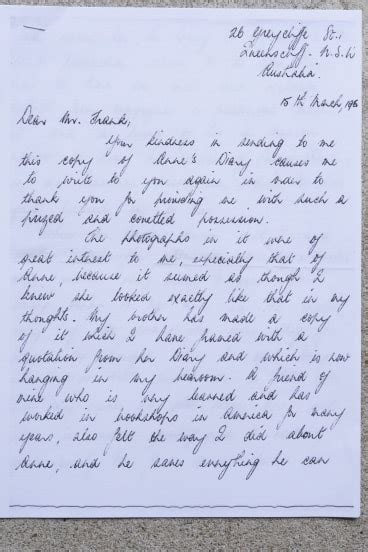 26 Greycliffe St.,
Queenscliff. N.S.W
Australia.
15th March, 196
Dear Mr. Frank,
Your kindness in sending to me
this copy of Anne's Diary causes me
to write to you again in order to
thank you for providing me with such a
prized and coveted possession.
The photographs in it were of
great interest to me, especially that of
Anne, because it seemed as though I
knew she looked exactly like that in my
thoughts. My mother has made a copy
of it which I have framed with a
quotation from her Diary and which is now
hanging in my bedroom. A friend of
mine who is very learned and has
worked in bookshops in America for many
years, also felt the way I did about
Anne, and he saves everything he can